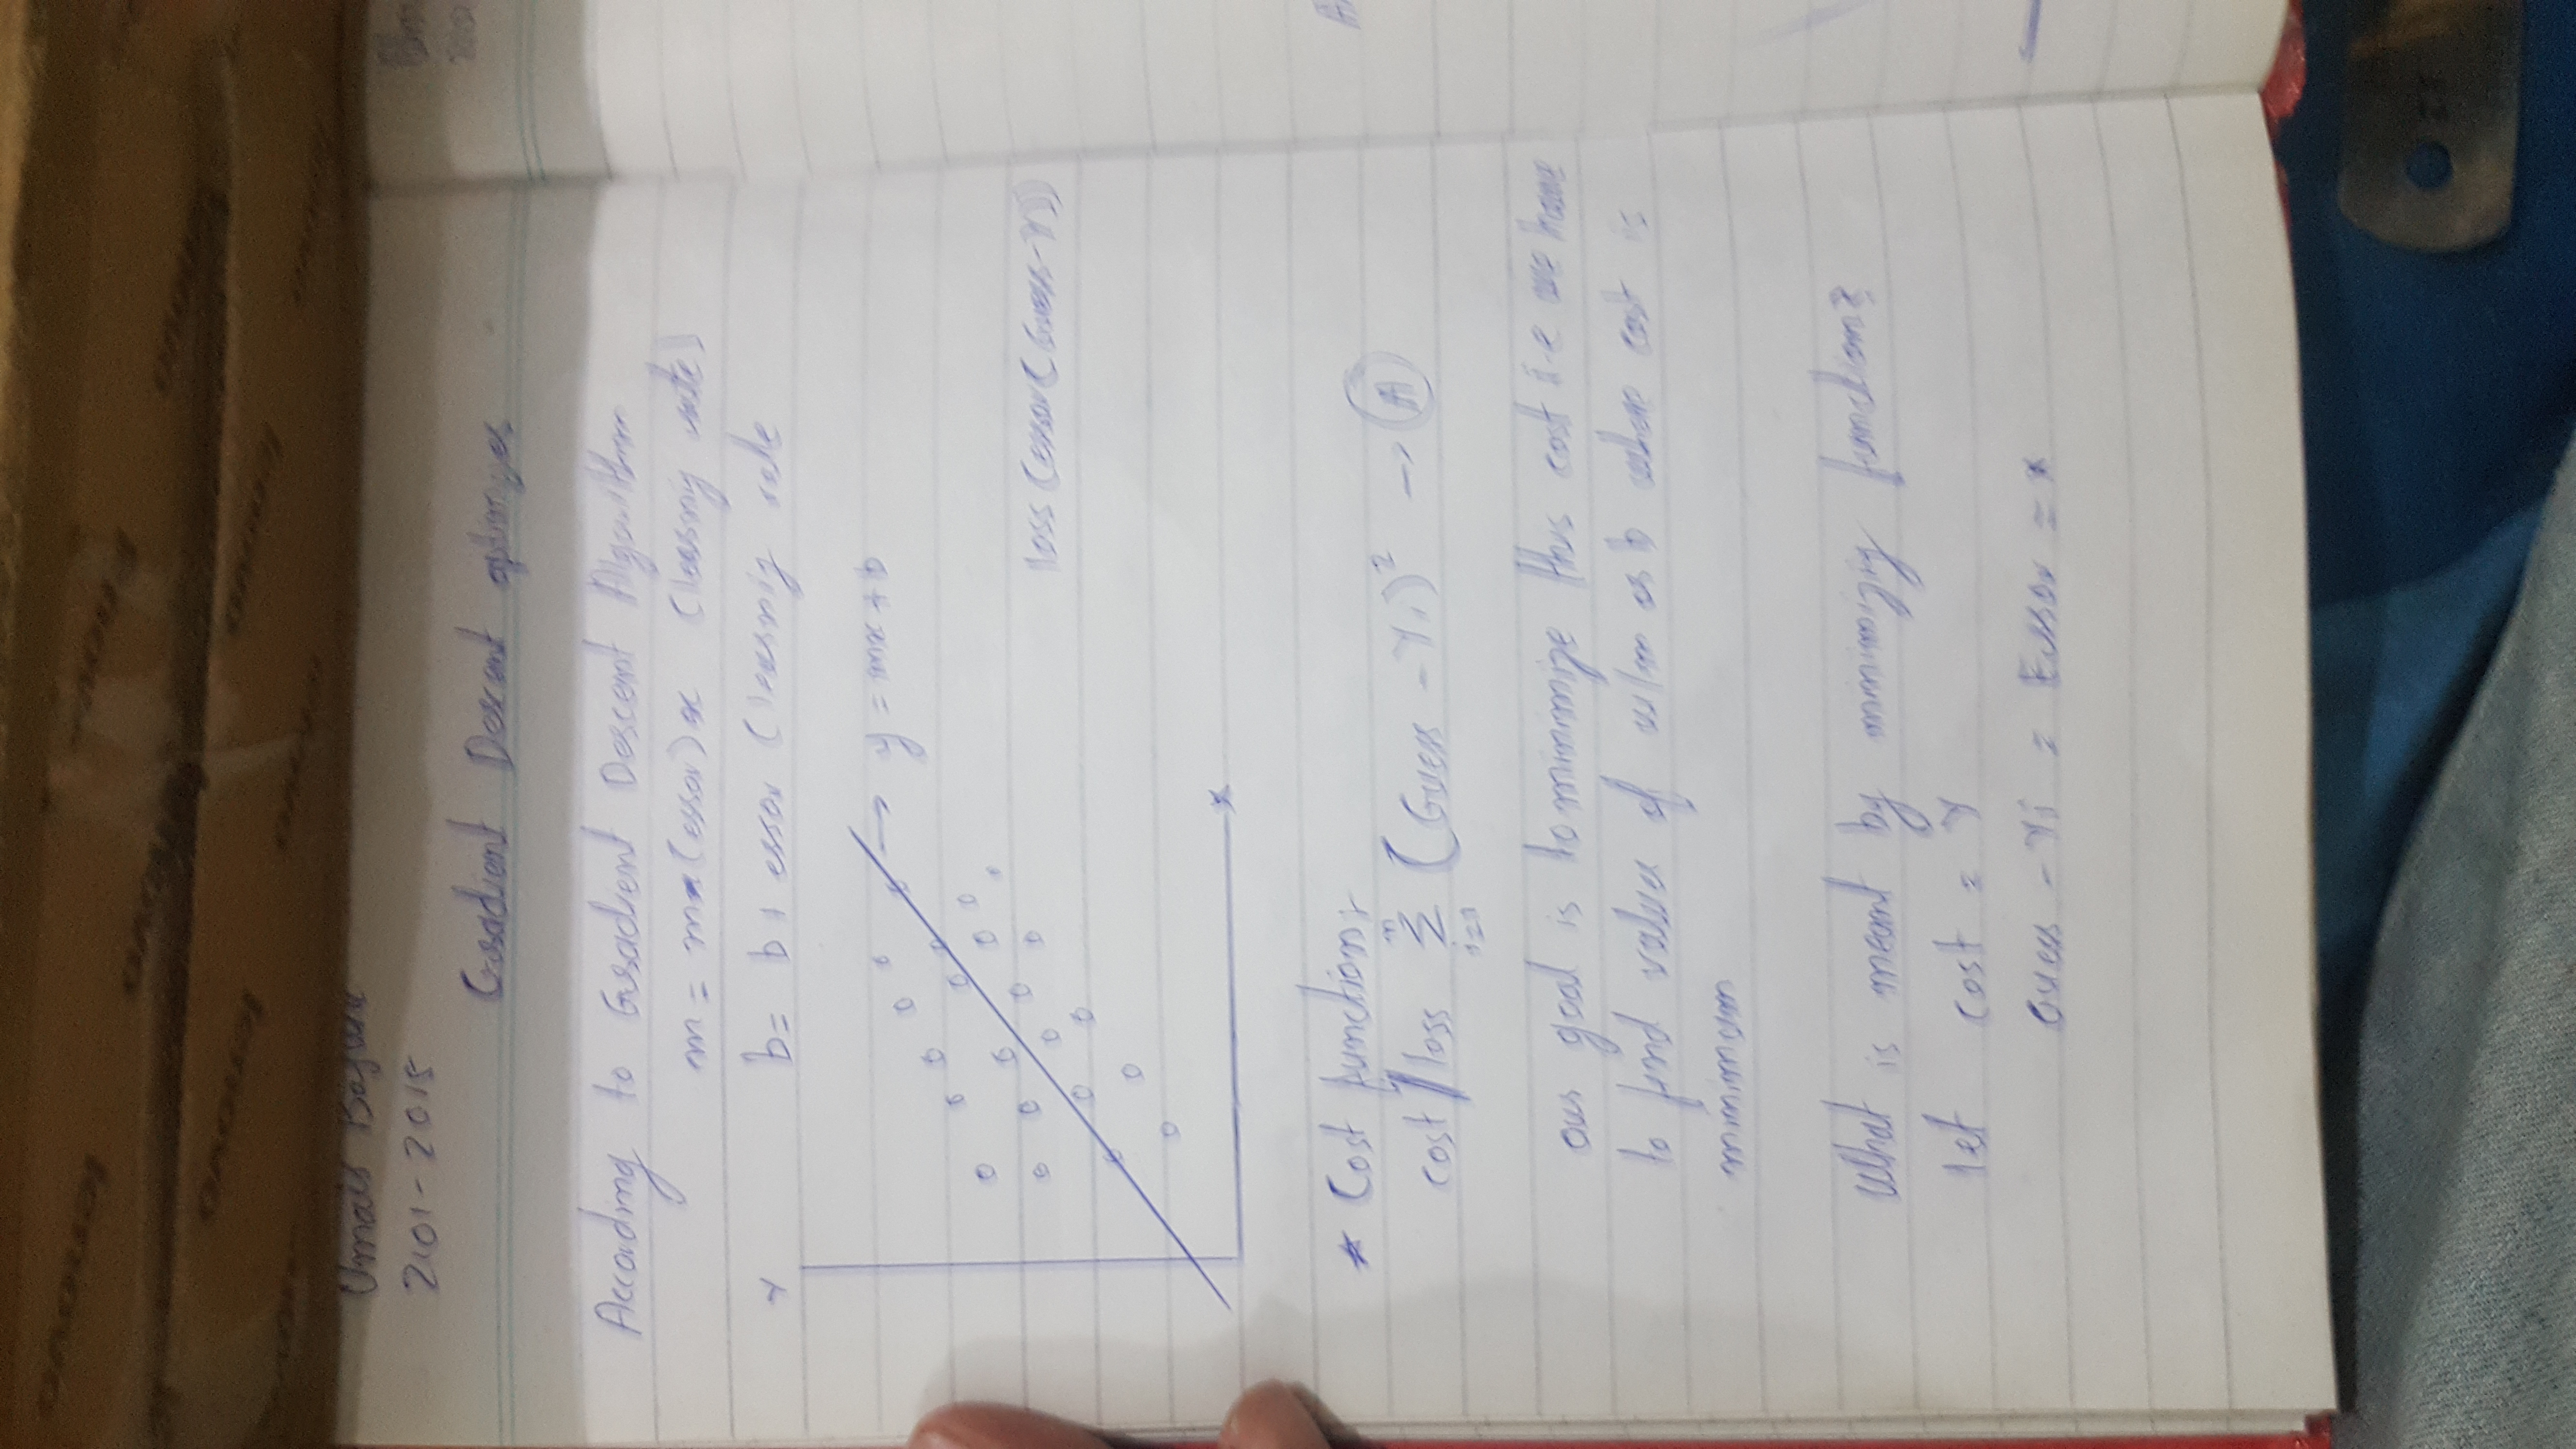 lenovo
lenovo
lenovo
lenovo
lenovo
lenovo
lenovo
2101-2015
Gradient Descent
According to Gradient Descent Algorithm
m = (error) x (learning rate)
b = b + error (learning rate
Y
y = mx + b
loss (error (Guess - Y))
x
* Cost function:
cost / loss n Σ i=1 (Guess - Yi)² → A
our goal is to minimize this cost i.e we have
to find value of w/m or b where cost is
minimum
What is meant by minimizig function?
let cost = Y
Guess - Yi = Error = x